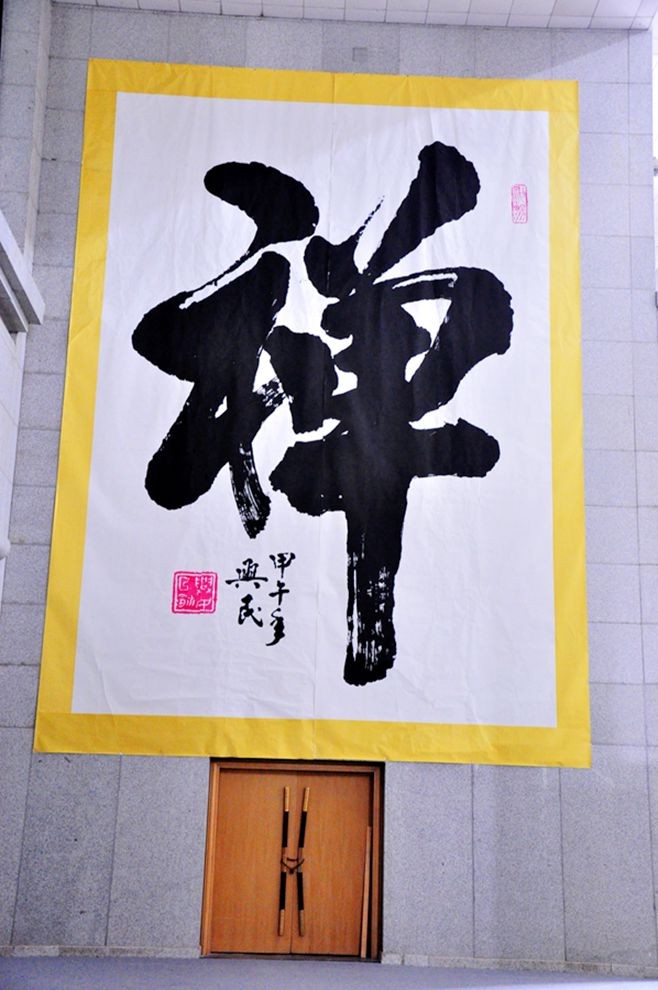 禅
甲午年
興民